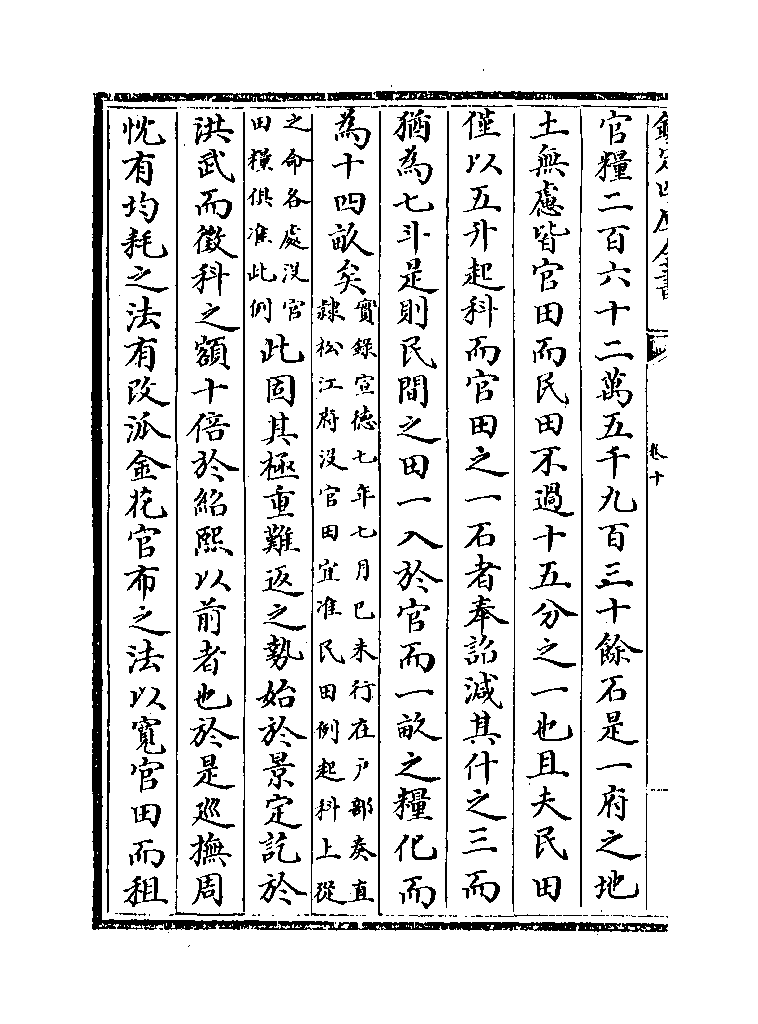 欽定四庫全書
卷十
官糧二百六十二萬五千九百三十餘石是一府之地
土無慮皆官田而民田不過十五分之一也且夫民田
僅以五升起科而官田之一石者奉詔減其什之三而
猶為七斗是則民間之田一入於官而一畝之糧化而
為十四畝矣
實錄宣德七年七月己未行在户部奏直
隸松江府没官田宜准民田例起科上從
之命各處没官
田糧俱准此例
此固其極重難返之勢始於景定訖於
洪武而徵科之額十倍於紹熙以前者也於是巡撫周
忱有均耗之法有改派金花官布之法以寛官田而租